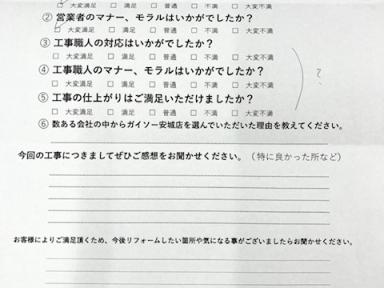 □ 大変満足 □ 満足 □ 普通 □ 不満 □ 大変不満
② 営業者のマナー、モラルはいかがでしたか？
□ 大変満足 □ 満足 □ 普通 □ 不満 □ 大変不満
③ 工事職人の対応はいかがでしたか？
□ 大変満足 □ 満足 □ 普通 □ 不満 □ 大変不満
④ 工事職人のマナー、モラルはいかがでしたか？
□ 大変満足 □ 満足 □ 普通 □ 不満 □ 大変不満
?
⑤ 工事の仕上がりはご満足いただけましたか？
□ 大変満足 □ 満足 □ 普通 □ 不満 □ 大変不満
⑥ 数ある会社の中からガイソー安城店を選んでいただいた理由を教えてください。
今回の工事につきましてぜひご感想をお聞かせください。（特に良かった所など）
お客様によりご満足頂くため、今後リフォームしたい箇所や気になる事がございましたらお聞かせください。